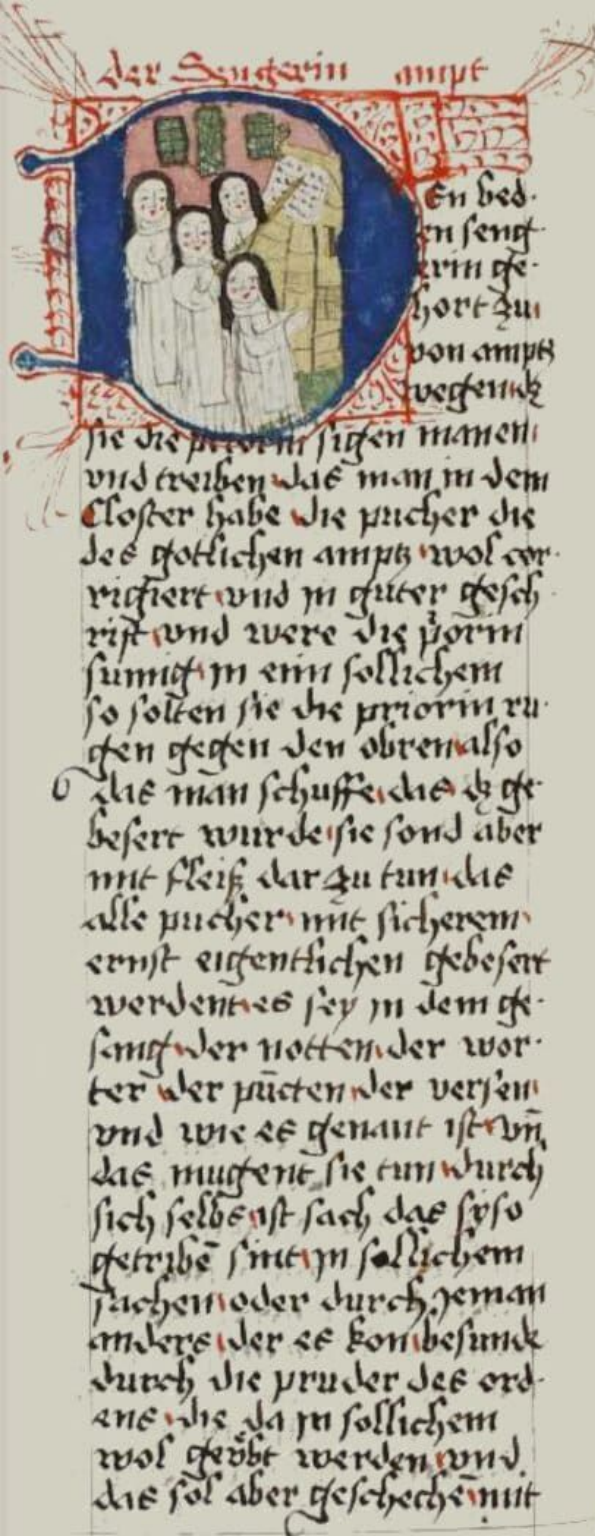 der Sengerin ampt
DEn bed-
en seng-
erin ge-
hort zu
von ampts
wegen dz
sie die priorin sigen manen
vnd treiben das man in dem
Closter habe die pucher die
des gotlichen amptz wol cor-
rigiert vnd in guter gesch-
rift vnd were die p̄orin
sumig in eim sollichem
so solten sie die priorin ru-
gen gegen den obren also
das man schuffe das dz ge-
besert wurde sie sond aber
mit fleiß dar zu tun das
alle pucher mit sicherem
ernst eigentlichen gebesert
werdent es sey in dem ge-
sang der notten der wor-
ter der pūcten der versen
vnd wie es genant ist vn̄
das mugent sie tun durch
sich selbs ist sach das sy so
getribē sint in sollichem
sachen oder durch yeman
anders der es kon besunder
durch die pruder des ord-
ens die da in sollichem
wol geübt werden vnd
das sol aber geschechē mit